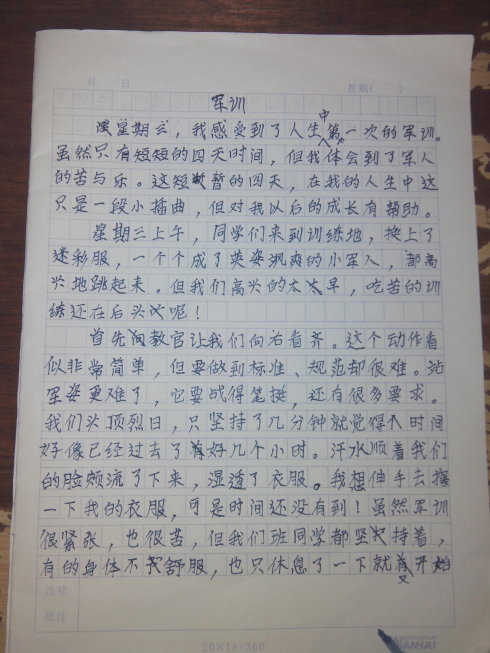 月 日 星期( )
军训
星期三，我感受到了人生中第一次的军训。
虽然只有短短的四天时间，但我体会到了军人
的苦与乐。这短暂的四天，在我的人生中这
只是一段小插曲，但对我以后的成长有帮助。
星期三上午，同学们来到训练地，换上了
迷彩服，一个个成了英姿飒爽的小军人，都高
兴地跳起来。但我们高兴的太早，吃苦的训
练还在后头呢！
首先教官让我们向右看齐。这个动作看
似非常简单，但要做到标准、规范却很难。站
军姿更难了，它要战得笔挺，还有很多要求。
我们头顶烈日，只坚持了几分钟就觉得时间
好像已经过去了好几个小时。汗水顺着我们
的脸颊流了下来，湿透了衣服。我想伸手去擦
一下我的衣服，可是时间还没有到！虽然军训
很紧张，也很苦，但我们班同学都坚持着，
有的身体不舒服，也只休息了一下就又开始
批注
20×18=360